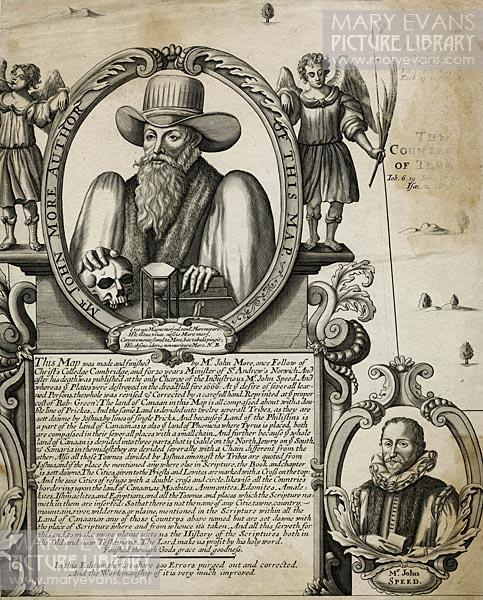 MARY EVANS
PICTURE LIBRARY
www.maryevans.com
Mr. JOHN MORE AUTHOR OF THIS MAP
THE
COUNTRE
OF
Iob. 6. 19
This Map was made and finished by Mr. John More, once Fellow of
Christs Colledge Cambridge, and for 20 years Minister of St. Andrew's Norwich. And
after his death was published at the only Charge of the Industrious Mr. John Speed. And
whereas ye Plates were destroyed in the dreadfull fire 1666. At ye desire of severall lear-
ned Persons, the whole was revised & Corrected by a carefull hand. Reprinted at ye proper
cost of Rob: Green. The land of Canaan in this Map is all compassed about with a dou-
ble line of Prickes, And the same Land is devided into twelve severall Tribes, as they are
set downe by Joshua by lines of single Pricks. And because ye Land of the Philistins is
a part of the land of Canaan, as is also ye land of Phoenicia where Tyrus is placed, both
are compassed in their severall places with a small chain, And further because ye whole
Land of Canaan is devided into three parts, that is Galile on the North, Jewry on ye South,
& Samaria in the midest they are devided severally with a Chain different from the
other. Also all those Townes devided by Joshua amongst the Tribes are quoted from
Joshua, and if the place be mentioned any where else in Scripture, the Book and chapter
is set down. The Cities given to the Priests and Levites are marked with a Cross on the top:
And the six Cities of refuge with a double cross and circle, likewise all the Countries
bordering upon the land of Canaan, as Moabites, Ammonites, Edomites, Amale-
kites, Ishmaelites and Egyptians, and all the Townes and places which the Scripture na-
meth in them are inserted: So that there is not the name of any Citie, towne, country,
mountain, river, wildernes, or plaine, mentioned in the Scripture within all the
Land of Canaan or any of those Countrys above named but are set downe with
the place of Scripture where and from whence it is taken. And all this serveth for
this end, to make more plaine unto us the History of the Scriptures, both in
the Old and new Testament. The Lord make us profit by his holy word.
finished through Gods grace and goodness.
In this Edition is above 400 Errors purged out and corrected.
And the Workmanship of it is very much improved.
Mr. John
SPEED.
MARY EVANS
PICTURE LIBRARY
www.maryevans.com